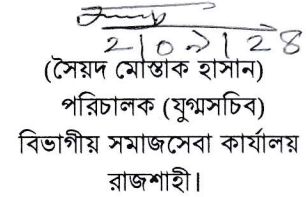 ২|০৯|২৪
(সৈয়দ মোস্তাক হাসান)
পরিচালক (যুগ্মসচিব)
বিভাগীয় সমাজসেবা কার্যালয়
রাজশাহী।